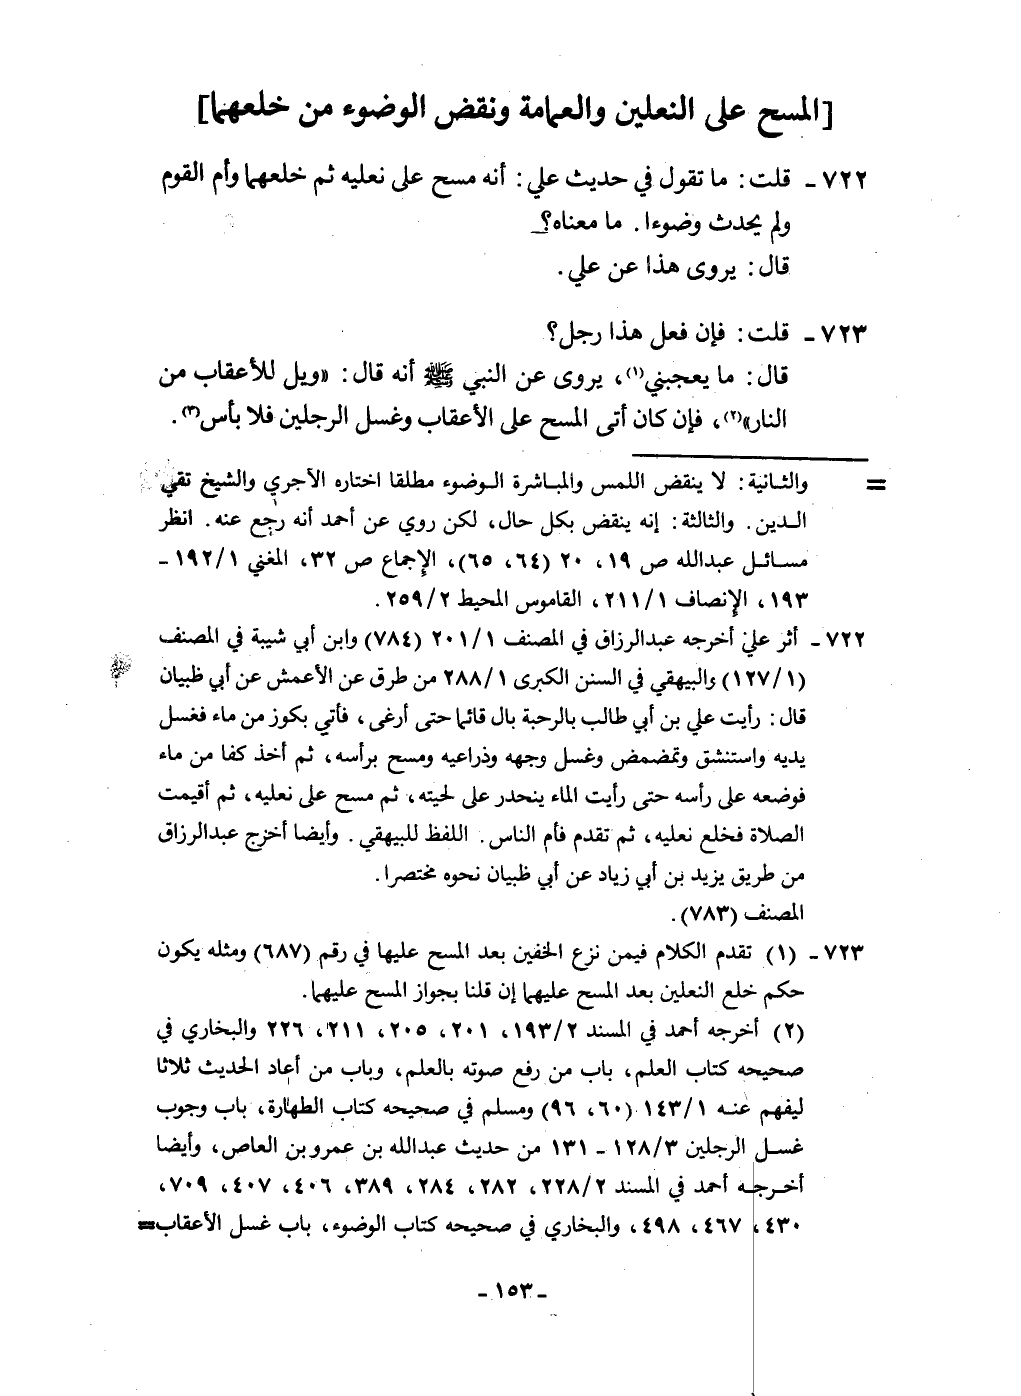 [المسح على النعلين والعمامة ونقض الوضوء من خلعهما]
٧٢٢ ـ قلت: ما تقول في حديث علي: أنه مسح على نعليه ثم خلعهما وأم القوم
ولم يحدث وضوءا. ما معناه؟
قال: يروى هذا عن علي.
٧٢٣ ـ قلت: فإن فعل هذا رجل؟
قال: ما يعجبني(١)، يروى عن النبي ﷺ أنه قال: «ويل للأعقاب من
النار»(٢)، فإن كان أتى المسح على الأعقاب وغسل الرجلين فلا بأس(٣).
= والثانية: لا ينقض اللمس والمباشرة الوضوء مطلقا اختاره الآجري والشيخ تقي
الدين. والثالثة: إنه ينقض بكل حال، لكن روي عن أحمد أنه رجع عنه. انظر
مسائل عبدالله ص ١٩، ٢٠ (٦٤، ٦٥)، الإجماع ص ٣٢، المغني ١/ ١٩٢ ـ
١٩٣، الإنصاف ١/ ٢١١، القاموس المحيط ٢/ ٢٥٩.
٧٢٢ ـ أثر علي أخرجه عبدالرزاق في المصنف ١/ ٢٠١ (٧٨٤) وابن أبي شيبة في المصنف
(١/ ١٢٧) والبيهقي في السنن الكبرى ١/ ٢٨٨ من طرق عن الأعمش عن أبي ظبيان
قال: رأيت علي بن أبي طالب بالرحبة بال قائما حتى أرغى، فأتي بكوز من ماء فغسل
يديه واستنشق وتمضمض وغسل وجهه وذراعيه ومسح برأسه، ثم أخذ كفا من ماء
فوضعه على رأسه حتى رأيت الماء ينحدر على لحيته، ثم مسح على نعليه، ثم أقيمت
الصلاة فخلع نعليه، ثم تقدم فأم الناس. اللفظ للبيهقي. وأيضا أخرج عبدالرزاق
من طريق يزيد بن أبي زياد عن أبي ظبيان نحوه مختصرا.
المصنف (٧٨٣).
٧٢٣ ـ (١) تقدم الكلام فيمن نزع الخفين بعد المسح عليها في رقم (٦٨٧) ومثله يكون
حكم خلع النعلين بعد المسح عليهما إن قلنا بجواز المسح عليهما.
(٢) أخرجه أحمد في المسند ٢/ ١٩٣، ٢٠١، ٢٠٥، ٢١١، ٢٢٦ والبخاري في
صحيحه كتاب العلم، باب من رفع صوته بالعلم، وباب من أعاد الحديث ثلاثا
ليفهم عنه ١/ ١٤٣ (٦٠، ٩٦) ومسلم في صحيحه كتاب الطهارة، باب وجوب
غسل الرجلين ٣/ ١٢٨ ـ ١٣١ من حديث عبدالله بن عمرو بن العاص، وأيضا
أخرجه أحمد في المسند ٢/ ٢٢٨، ٢٨٢، ٢٨٤، ٣٨٩، ٤٠٦، ٤٠٧، ٧٠٩،
٤٣٠، ٤٦٧، ٤٩٨، والبخاري في صحيحه كتاب الوضوء، باب غسل الأعقاب=
ـ ١٥٣ ـ